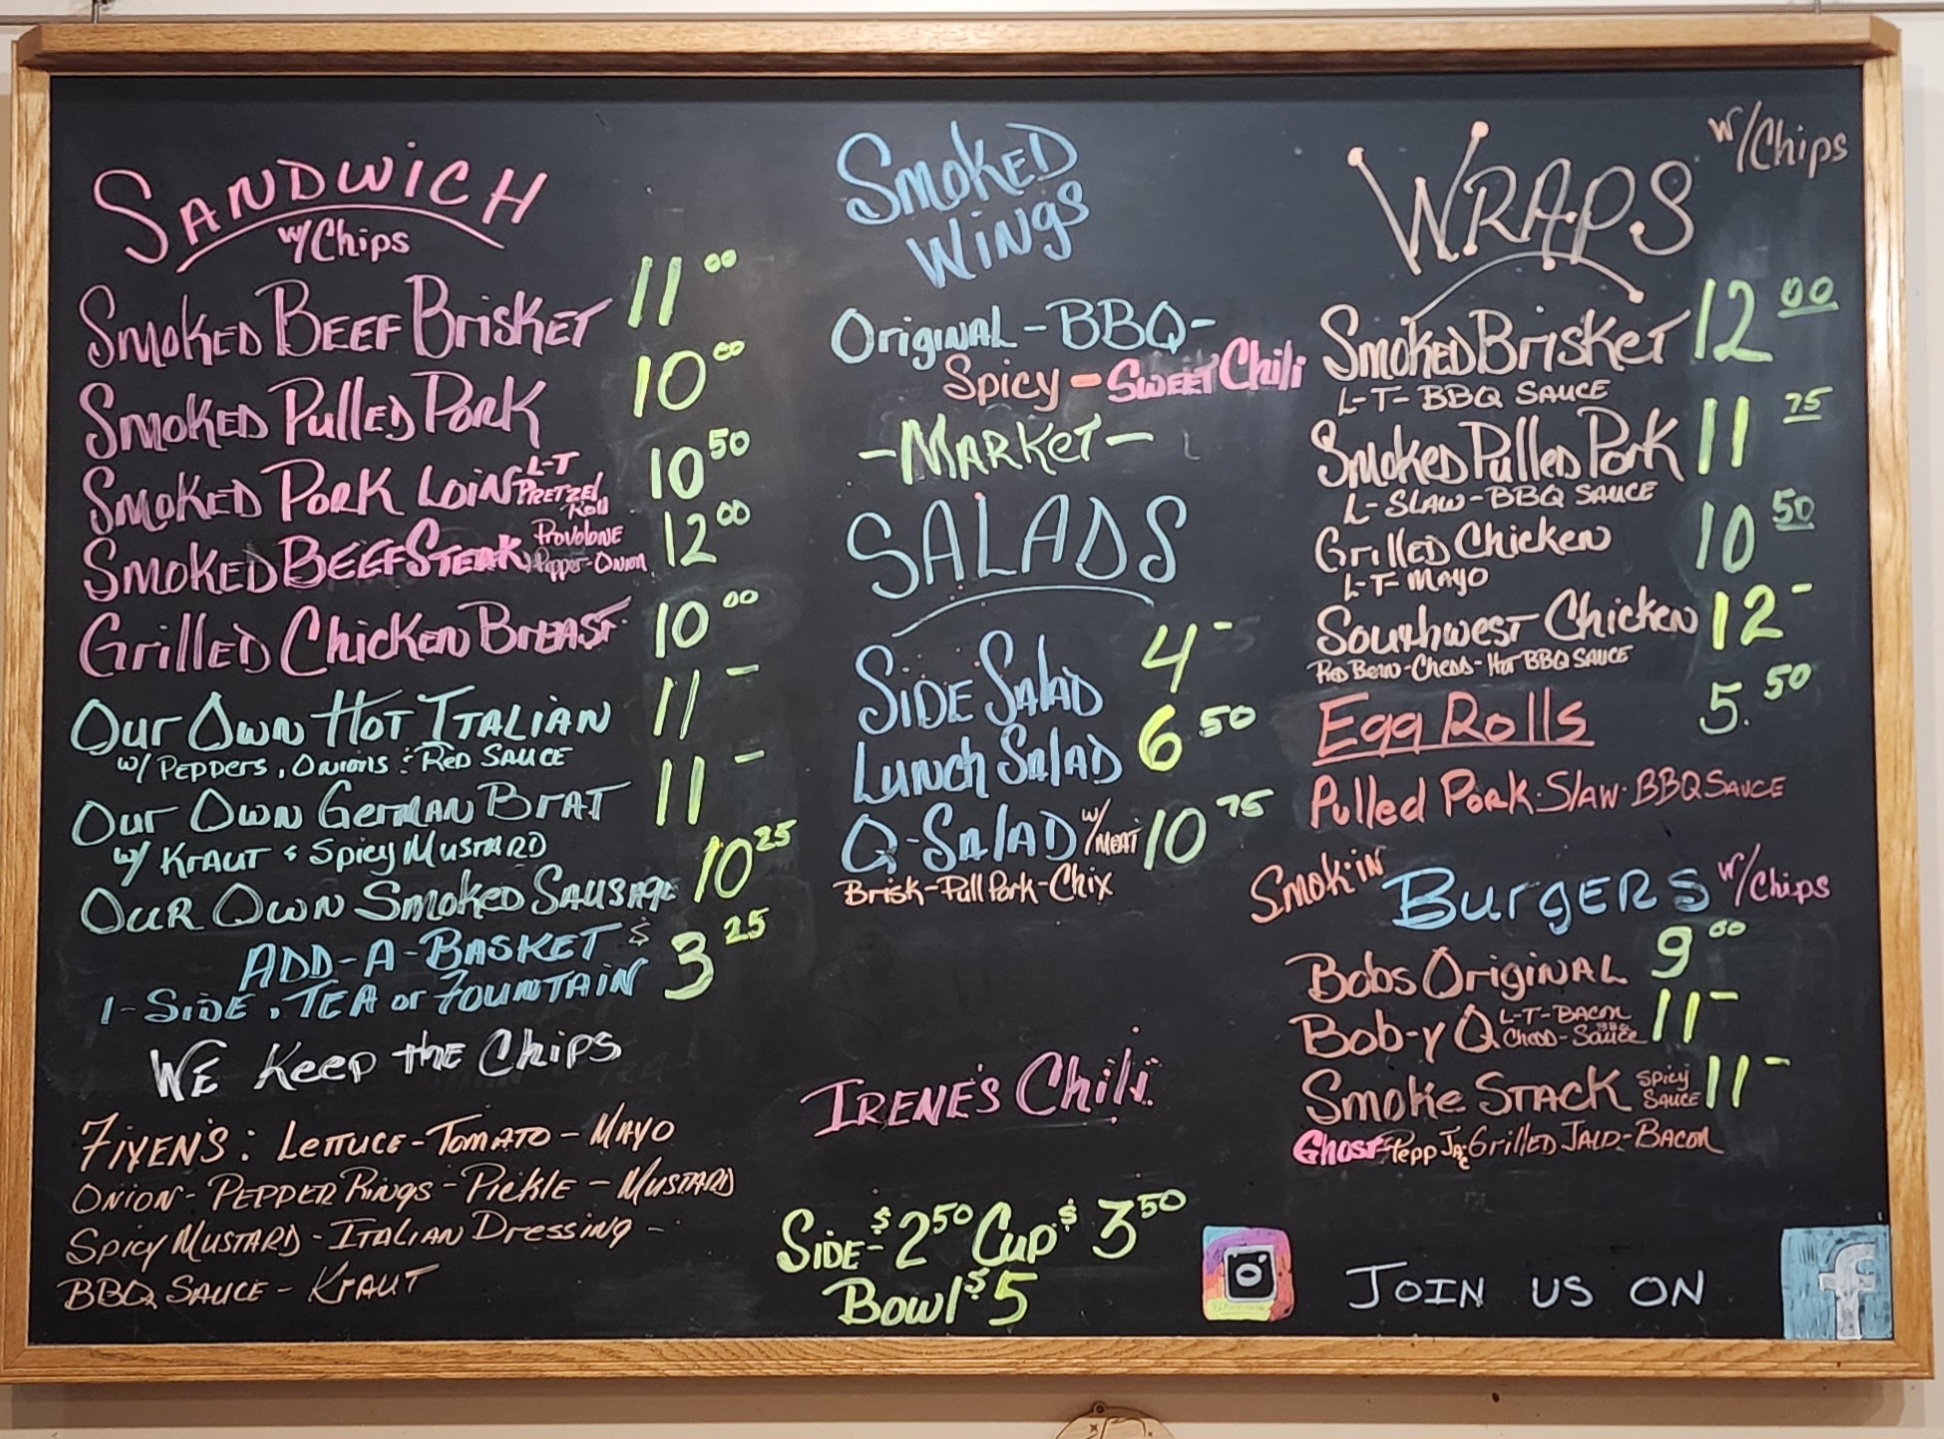 SANDWICH
w/Chips
SMOKED BEEF BRISKET 11 00
SMOKED PULLED PORK 10 00
SMOKED PORK LOIN L-T PRETZEL ROLL 10 50
SMOKED BEEF STEAK PROVOLONE Pepper-Onion 12 00
GRILLED CHICKEN BREAST 10 00
OUR OWN HOT ITALIAN 11 -
w/ PEPPERS, ONIONS & RED SAUCE
OUR OWN GERMAN BRAT 11 -
w/ KRAUT & SPICY MUSTARD
OUR OWN SMOKED SAUSAGE 10 25
ADD-A-BASKET $ 3 25
1-SIDE, TEA or FOUNTAIN
WE Keep the Chips
FIXEN'S: LETTUCE-TOMATO-MAYO
ONION-PEPPER RINGS-PICKLE-MUSTARD
SPICY MUSTARD-ITALIAN DRESSING-
BBQ SAUCE-KRAUT
SMOKED
WINGS
ORIGINAL-BBQ-
SPICY-SWEET CHILI
-MARKET-
SALADS
SIDE SALAD 4 -
LUNCH SALAD 6 50
Q-SALAD w/MEAT 10 75
BRISK-PULL PORK-CHIX
IRENE'S CHILI
SIDE-$2 50 CUP $3 50
BOWL $5
WRAPS w/Chips
SMOKED BRISKET 12 00
L-T-BBQ SAUCE
SMOKED PULLED PORK 11 75
L-SLAW-BBQ SAUCE
GRILLED CHICKEN 10 50
L-T-MAYO
SOUTHWEST CHICKEN 12 -
RED BEAN-CHEDD-HOT BBQ SAUCE
EGG ROLLS 5.50
PULLED PORK-SLAW-BBQ SAUCE
SMOK-IN BURGERS w/Chips
BOBS ORIGINAL 9 00
BOB-Y Q L-T-BACON CHEDD-BBQ SAUCE 11 -
SMOKE STACK SPICY SAUCE 11 -
GHOST PEPP JAC GRILLED JALO-BACON
JOIN US ON f